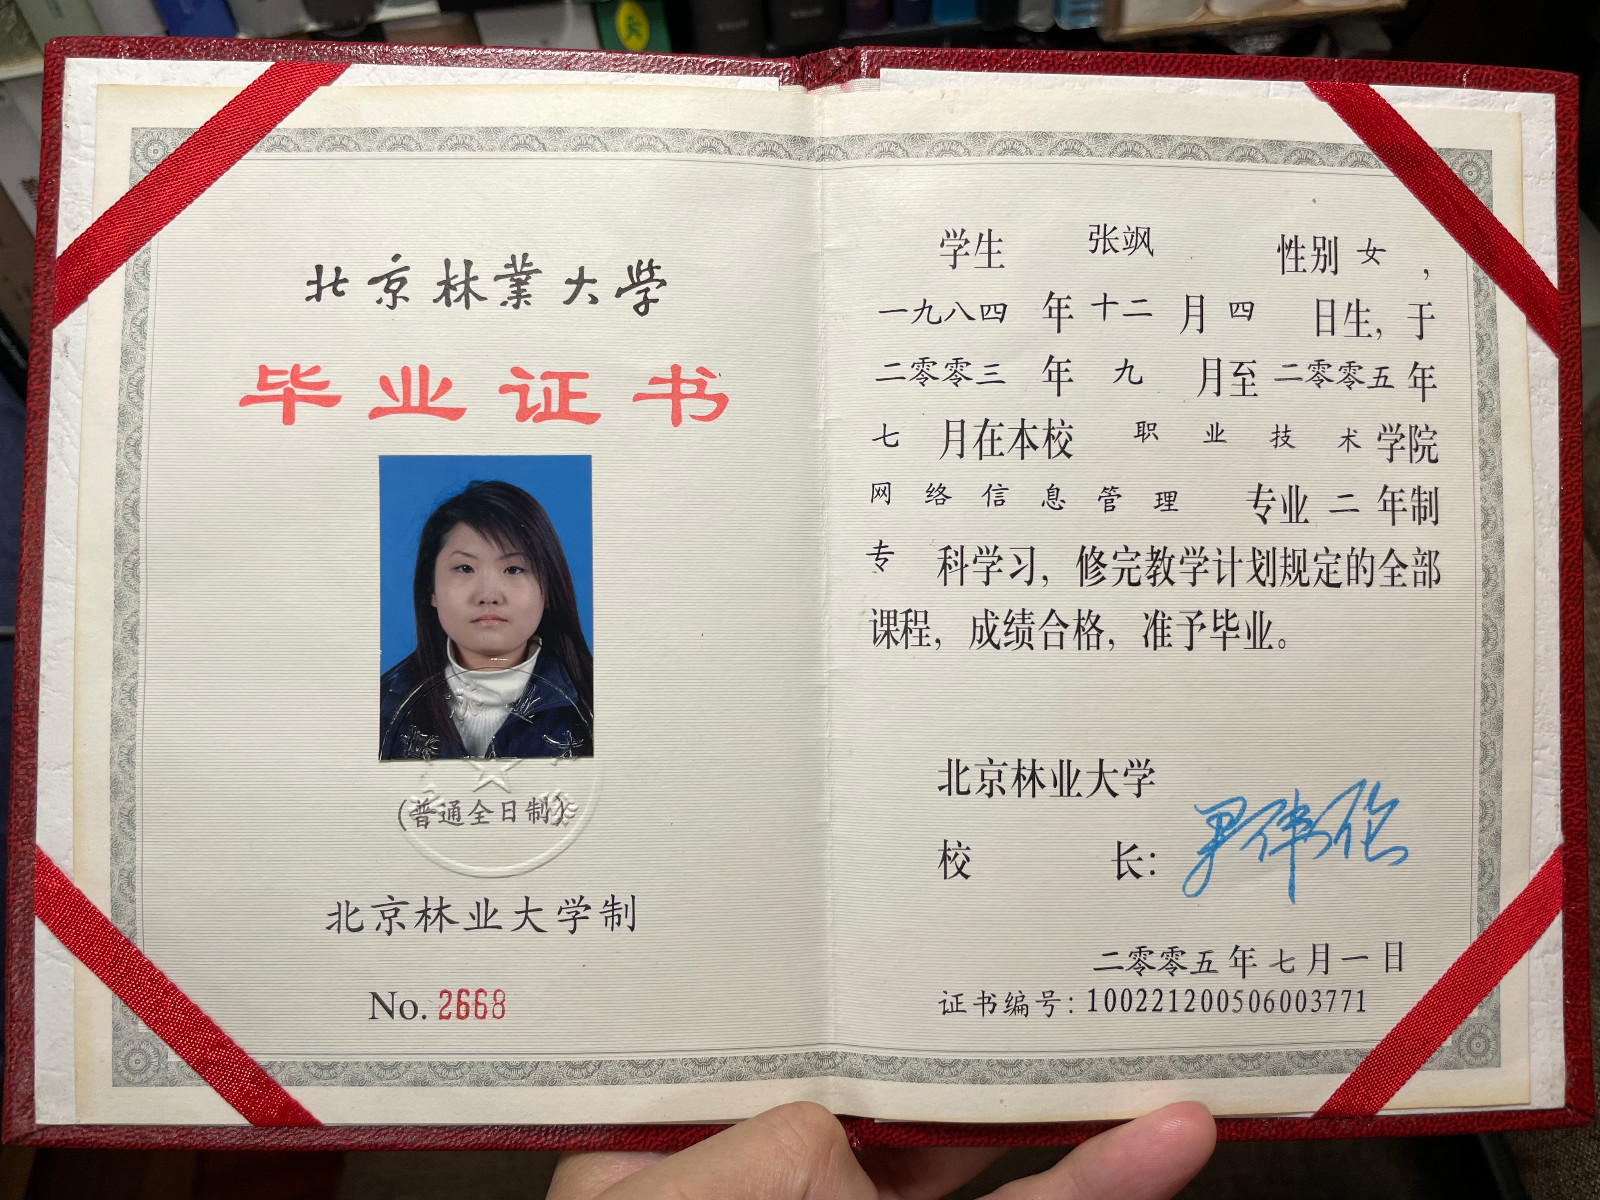 北京林業大学
毕业证书
(普通全日制)
北京林业大学制
No. 2668
学生 张飒 性别 女，
一九八四 年 十二 月 四 日生，于
二零零三 年 九 月至 二零零五 年
七 月在本校 职业技术 学院
网络信息管理 专业 二 年制
专 科学习，修完教学计划规定的全部
课程，成绩合格，准予毕业。
北京林业大学
校 长：尹伟伦
二零零五年七月一日
证书编号：100221200506003771